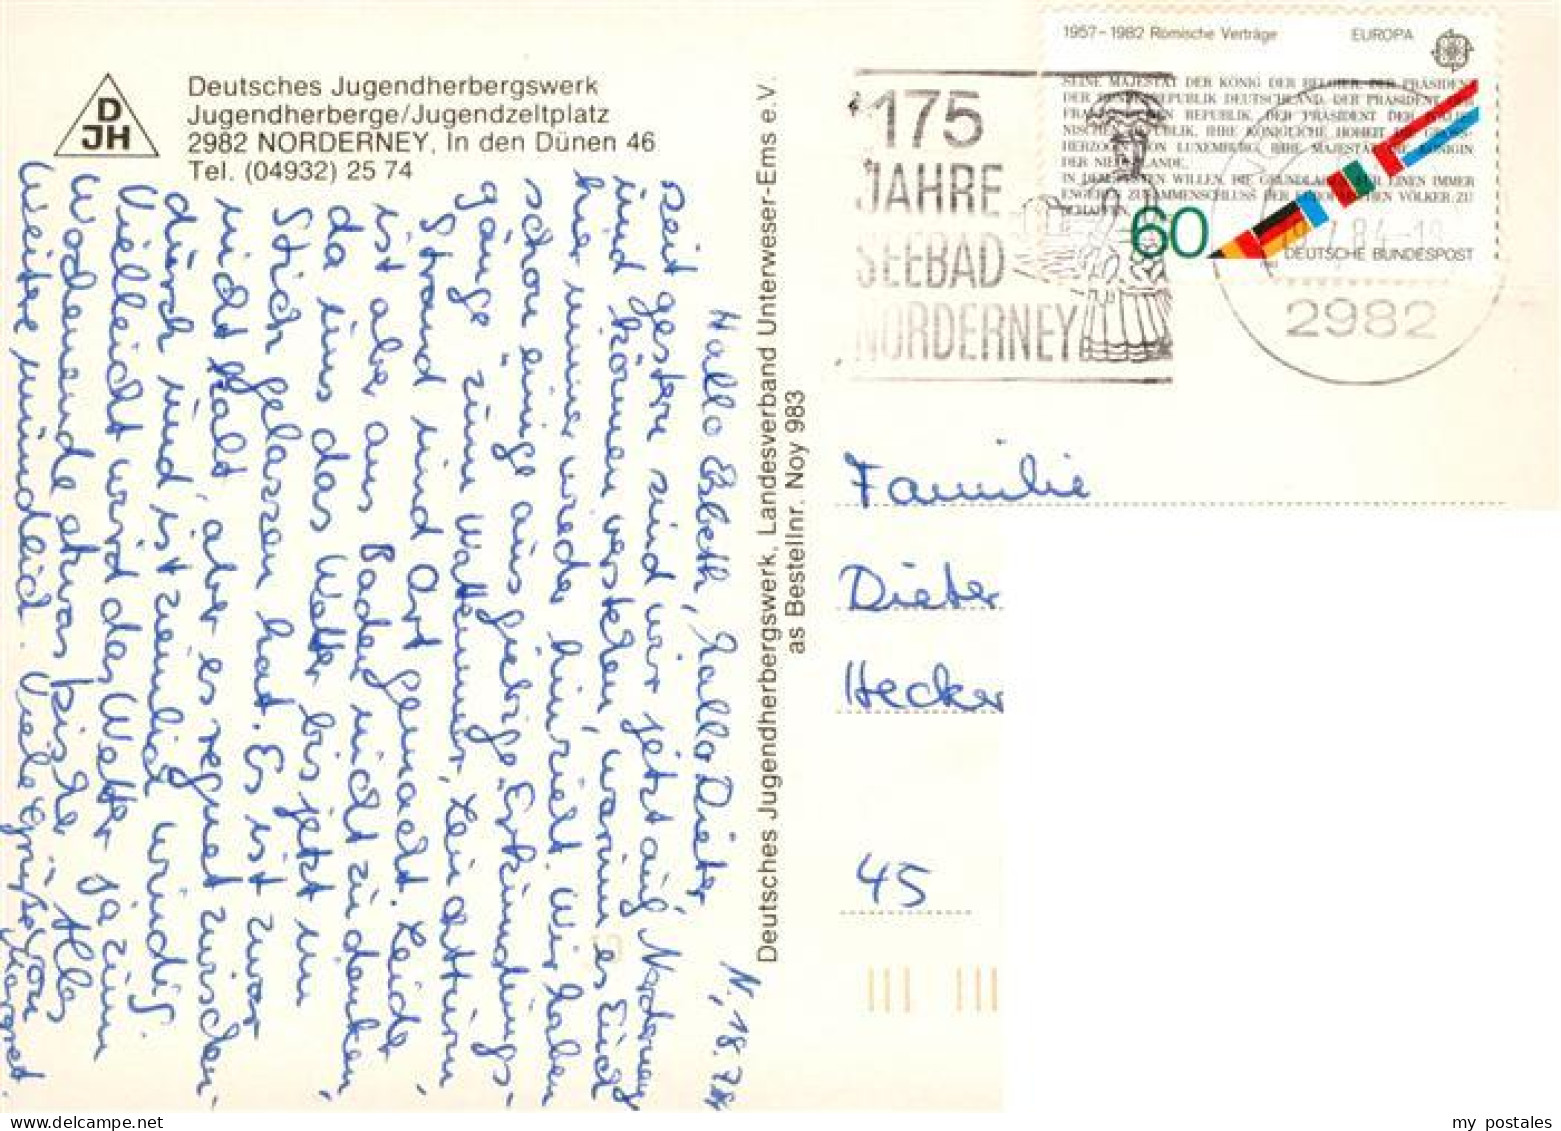 D
JH
Deutsches Jugendherbergswerk
Jugendherberge/Jugendzeltplatz
2982 NORDERNEY, In den Dünen 46
Tel. (04932) 25 74
N., 18.7.84
Hallo Elsbeth, hallo Dieter,
seit gestern sind wir jetzt auf Norderney
und können verstehen, warum es Euch
hier immer wieder hinzieht. Wir haben
schon einige ausgiebige „Erkundungs-
gänge" zum Wattenmeer, Leuchtturm
Strand und Ort gemacht. Leider
ist aber ans Baden nicht zu denken,
da uns das Wetter bis jetzt im
Stich gelassen hat. Es ist zwar
nicht kalt, aber es regnet zwischen-
durch und ist ziemlich windig.
Vielleicht wird das Wetter ja zum
Wochenende etwas besser. Alles
Weitere mündlich. Viele Grüße von
Margret.
Deutsches Jugendherbergswerk, Landesverband Unterweser-Ems e.V.
as Bestellnr. Noy 983
175
JAHRE
SEEBAD
NORDERNEY
1957-1982 Römische Verträge EUROPA
SEINE MAJESTÄT DER KÖNIG DER BELGIER, DER PRÄSIDENT
DER BUNDESREPUBLIK DEUTSCHLAND, DER PRÄSIDENT DER
FRANZÖSISCHEN REPUBLIK, DER PRÄSIDENT DER ITALIE-
NISCHEN REPUBLIK, IHRE KÖNIGLICHE HOHEIT DIE GROSS-
HERZOGIN VON LUXEMBURG, IHRE MAJESTÄT DIE KÖNIGIN
DER NIEDERLANDE,
IN DEM FESTEN WILLEN, DIE GRUNDLAGEN FÜR EINEN IMMER
ENGEREN ZUSAMMENSCHLUSS DER EUROPÄISCHEN VÖLKER ZU
SCHAFFEN,
60
DEUTSCHE BUNDESPOST
84-18
2982
Familie
Dieter
Hecker
45
my postales